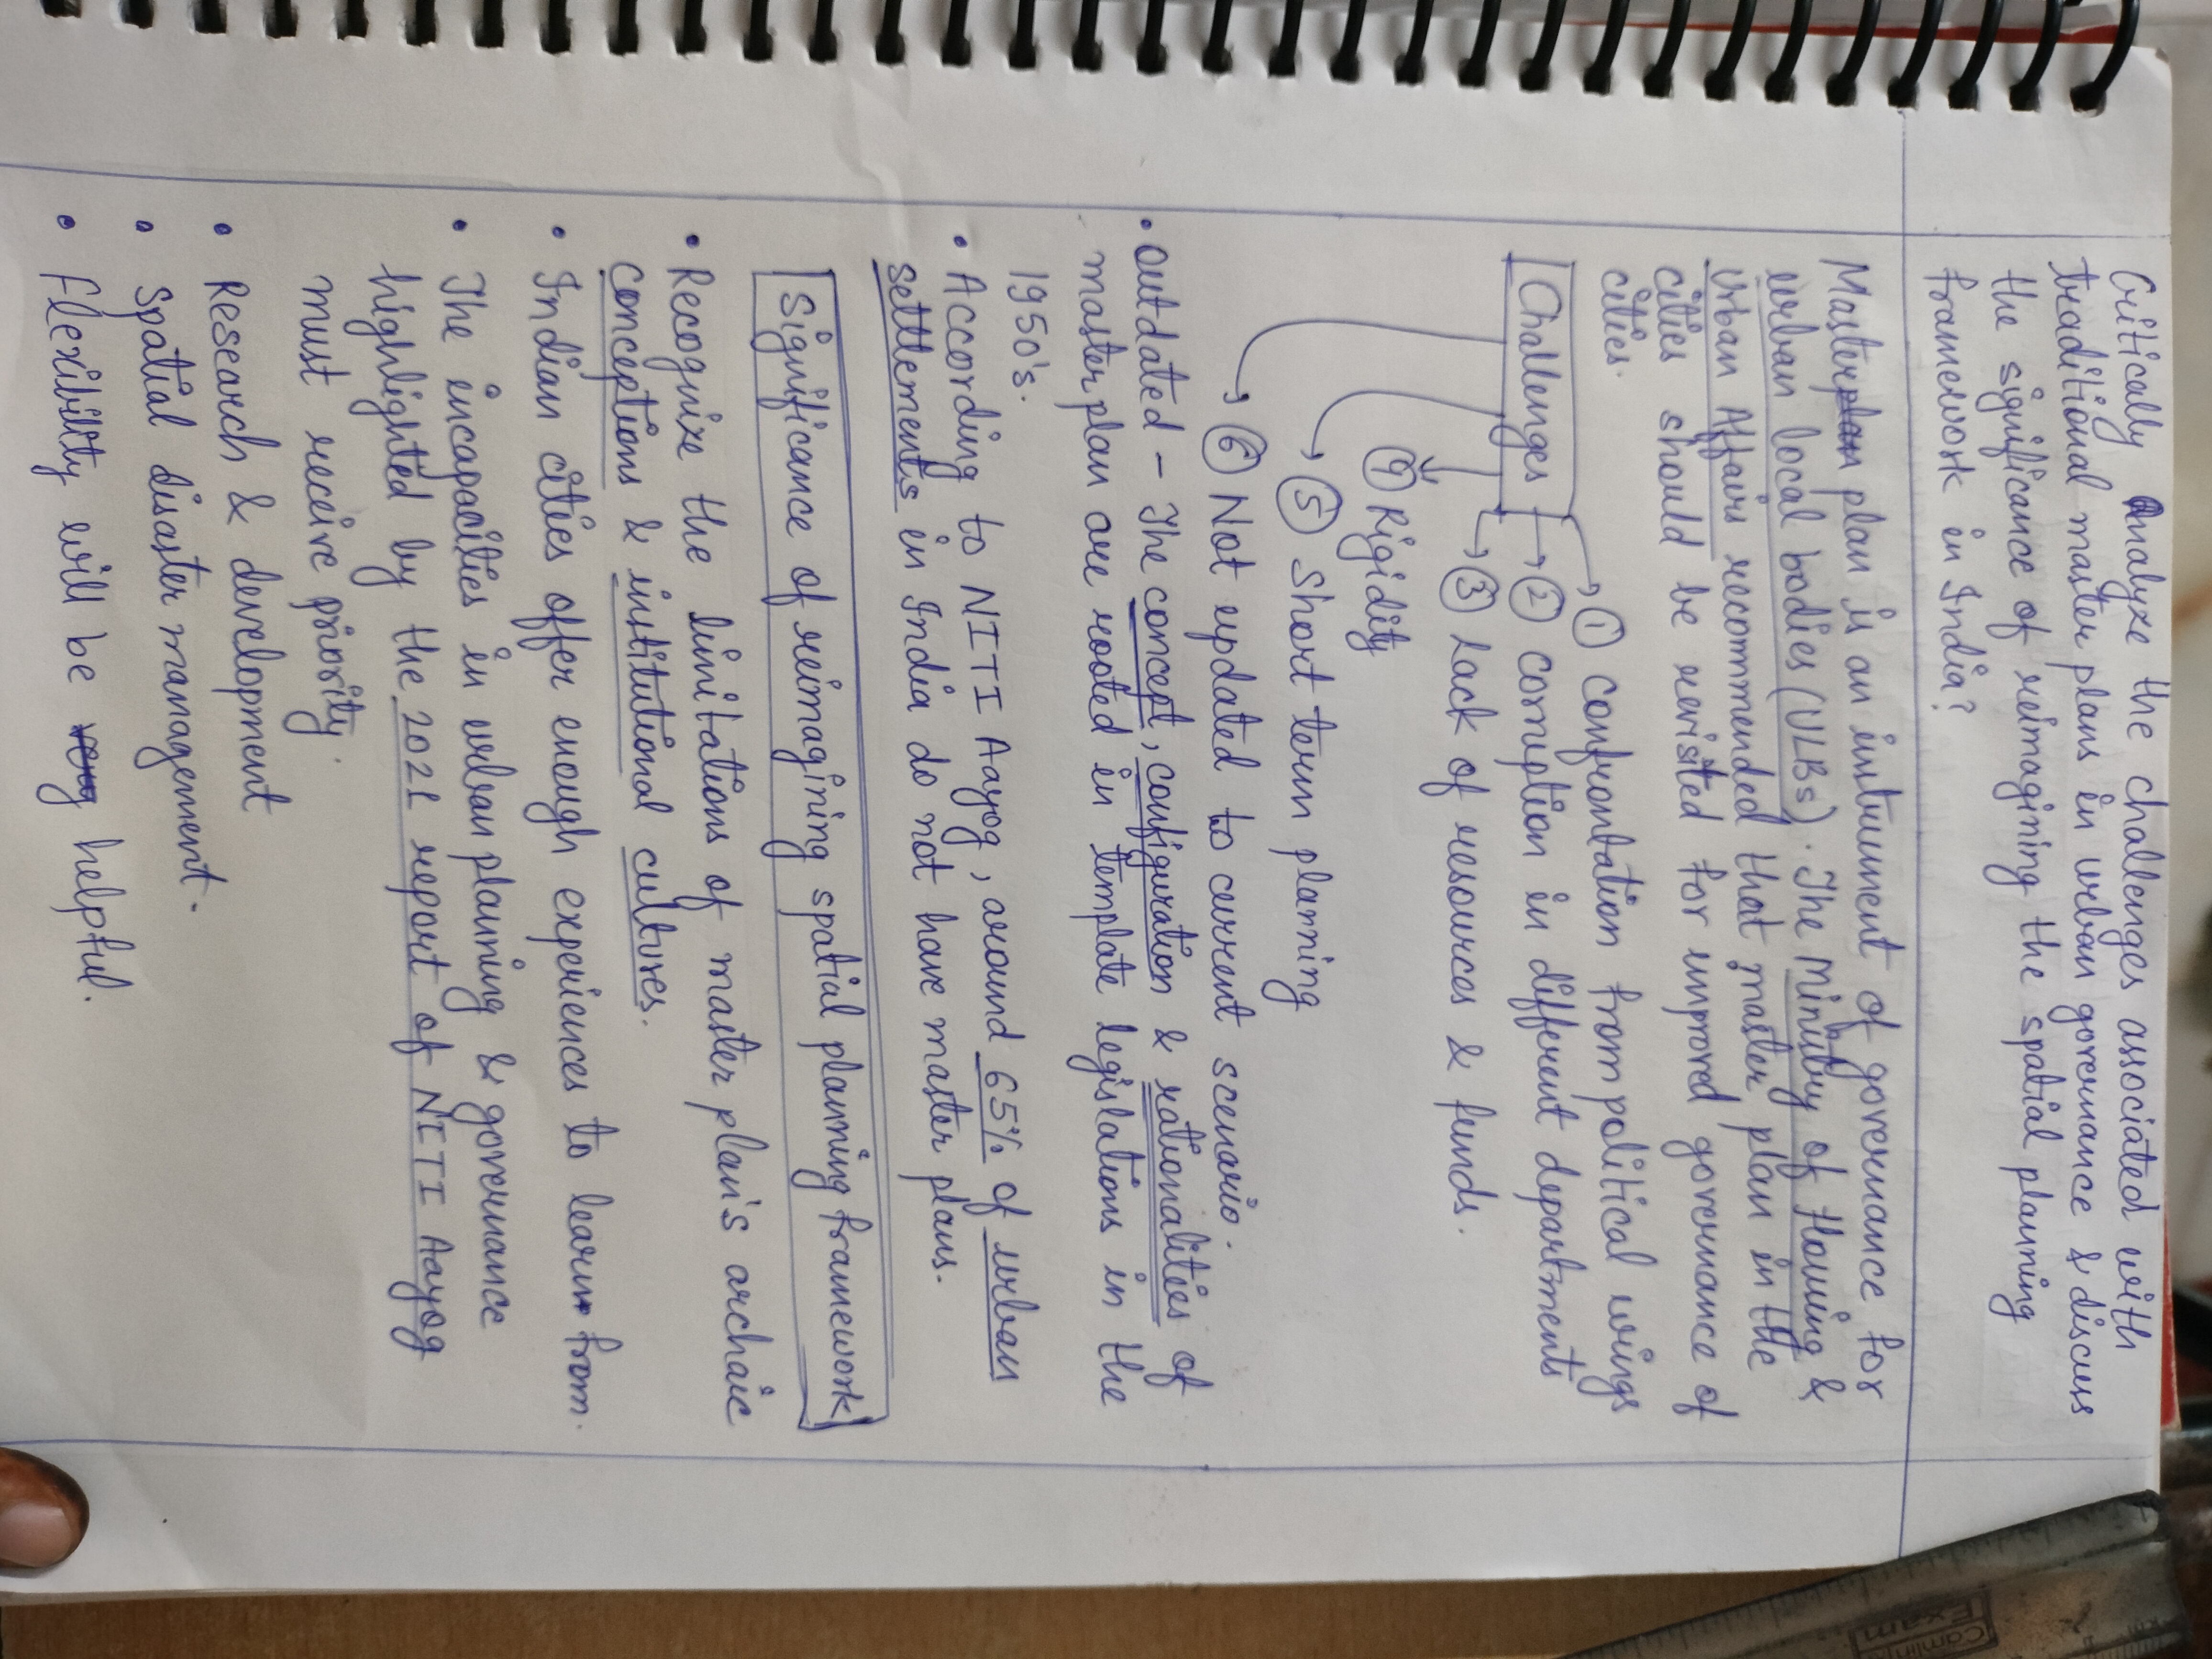 Critically Analyze the challenges associated with
traditional master plans in urban governance & discuss
the significance of reimagining the spatial planning
framework in India?
Master plan is an instrument of governance for
urban local bodies (ULBs). The Ministry of Housing &
Urban Affairs recommended that master plan in the
cities should be revisited for improved governance of
cities.
Challenges
① confrontation from political wings
② corruption in different departments
③ Lack of resources & funds.
④ Rigidity
⑤ Short term planning
⑥ Not updated to current scenario.
• outdated - The concept, configuration & rationalities of
master plan are rooted in template legislations in the
1950's.
• According to NITI Aayog, around 65% of urban
settlements in India do not have master plans.
Significance of reimagining spatial planning framework
• Recognize the limitations of master plan's archaic
conceptions & institutional cultures.
• Indian cities offer enough experiences to learn from.
• The incapacities in urban planning & governance
highlighted by the 2021 report of NITI Aayog
must receive priority.
• Research & development
• Spatial disaster management.
• Flexibility will be helpful.
Camlin
Exam